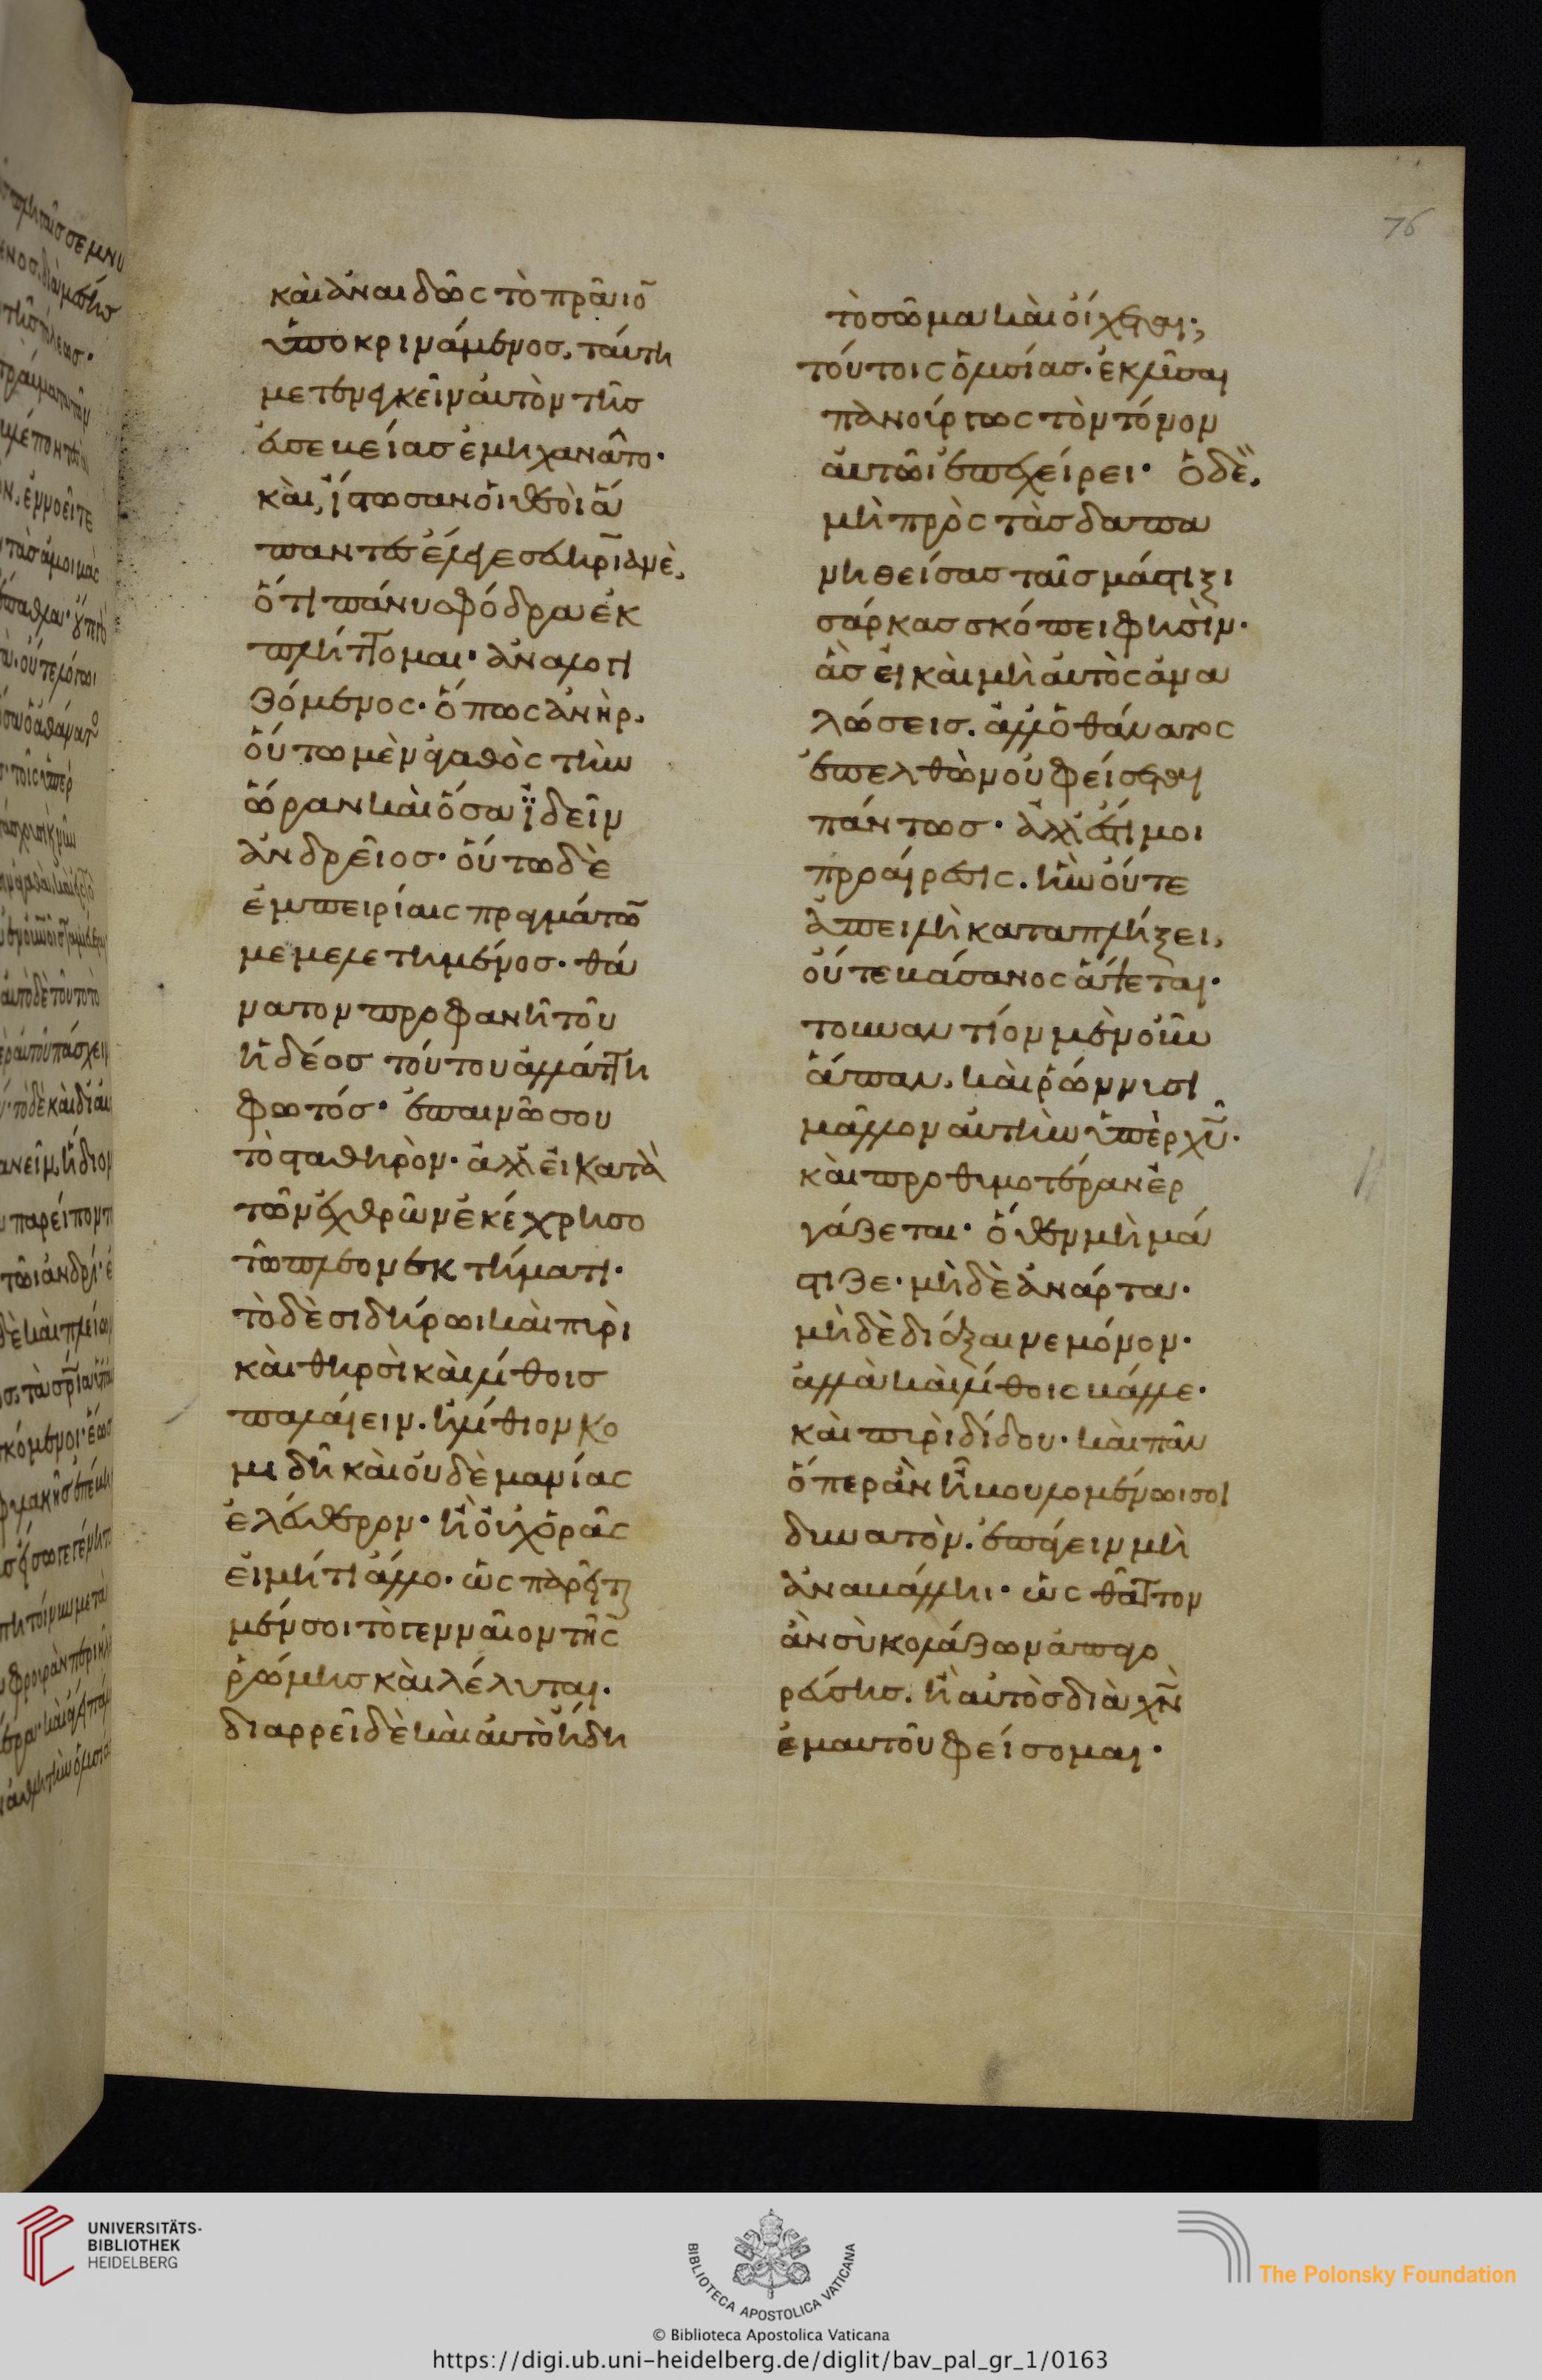 76
καὶ ἀναιδῶς τὸ πρᾶιο̃
ὑποκρινάμενος, ταύτη
μετενεγκεῖν αὐτὸν τῆς
ἀσεβείας ἐμηχανᾶτο·
καὶ, ἴστωσαν οἱ θεοὶ ἅ
παντες ἔλεγε σευηριανὲ,
ὅτι πάνυ σφόδρα ἐκ
πλήττομαι· ἀναλογι
ζόμενος· ὅπως ἀνὴρ,
οὕτω μὲν ἀγαθὸς τὴν
ὥραν καὶ ὅσα ἰδεῖν
ἀνδρεῖος· οὕτω δὲ
ἐμπειρίαις πραγμάτω̃
μεμελετημένος· θά
νατον προφανῆ τοῦ
ἡδέος τούτου ἀλλάττη
φωτός· ἐπαινῶ σου
τὸ σταθηρὸν· ἀλλ' εἰ κατὰ
τῶν ἐχθρῶν ἐκέχρησο
τῶ πλεονεκτήματι·
τὸ δὲ σιδήρωι καὶ πυρὶ
καὶ θηρσὶ καὶ λίθοις
παλαίειν. ἠλίθιον κο
μιδῆ καὶ οὐδὲ μανίας
ἐλεύθερον· ἢ οὐχ ὁρᾶς
εἰ μή τι ἄλλο· ὡς παρεῖται
μέν σοι τὸ γενναῖον τῆς
ῥώμης καὶ λέλυται.
διαρρεῖ δὲ καὶ αὐτὸ ἤδη
τὸ σῶμα καὶ οἴχεται;
τούτοις ὁ λυσίας· ἐκλῦσαι
πανούργως τὸν τόνον
αὐτῶι ἐπεχείρει· ὁ δὲ,
μὴ πρὸς τὰς δαπα
νηθείσας ταῖς μάστιξι
σάρκας σκόπει φησὶν·
ἃς εἰ καὶ μὴ αὐτὸς ἀνα
λώσεις. ἀλλ' ὁ θάνατος
ἐπελθὼν οὐ φείσεται
πάντως· ἀλλ' ἔστι μοι
προαίρεσις. ἣν οὔτε
ἀπειλὴ καταπλήξει,
οὔτε βάσανος ἅψεται·
τουναντίον μὲν οὖν
ἅπαν, καὶ ῥώννυσι
μᾶλλον αὐτὴν ὑπὲρ χῦ·
καὶ προθυμοτέραν ἐρ
γάζεται· ὅθεν μὴ μά
στιζε· μὴ δὲ ἀνάρτα·
μὴ δὲ διάξαινε μόνον·
ἀλλὰ καὶ λίθοις βάλλε·
καὶ πυρὶ δίδου· καὶ πᾶν
ὅπερ ἂν ἦ βουλομένωι σοι
δυνατὸν. ἐπάγειν μὴ
ἀναβάλλη· ὡς θᾶττον
ἂν σὺ κολάζων ἀπαγο
ρεύσης. ἢ αὐτὸς διὰ χν̃
ἐμαυτοῦ φείσομαι·
UNIVERSITÄTS-
BIBLIOTHEK
HEIDELBERG
BIBLIOTECA APOSTOLICA VATICANA
The Polonsky Foundation
© Biblioteca Apostolica Vaticana
https://digi.ub.uni-heidelberg.de/diglit/bav_pal_gr_1/0163